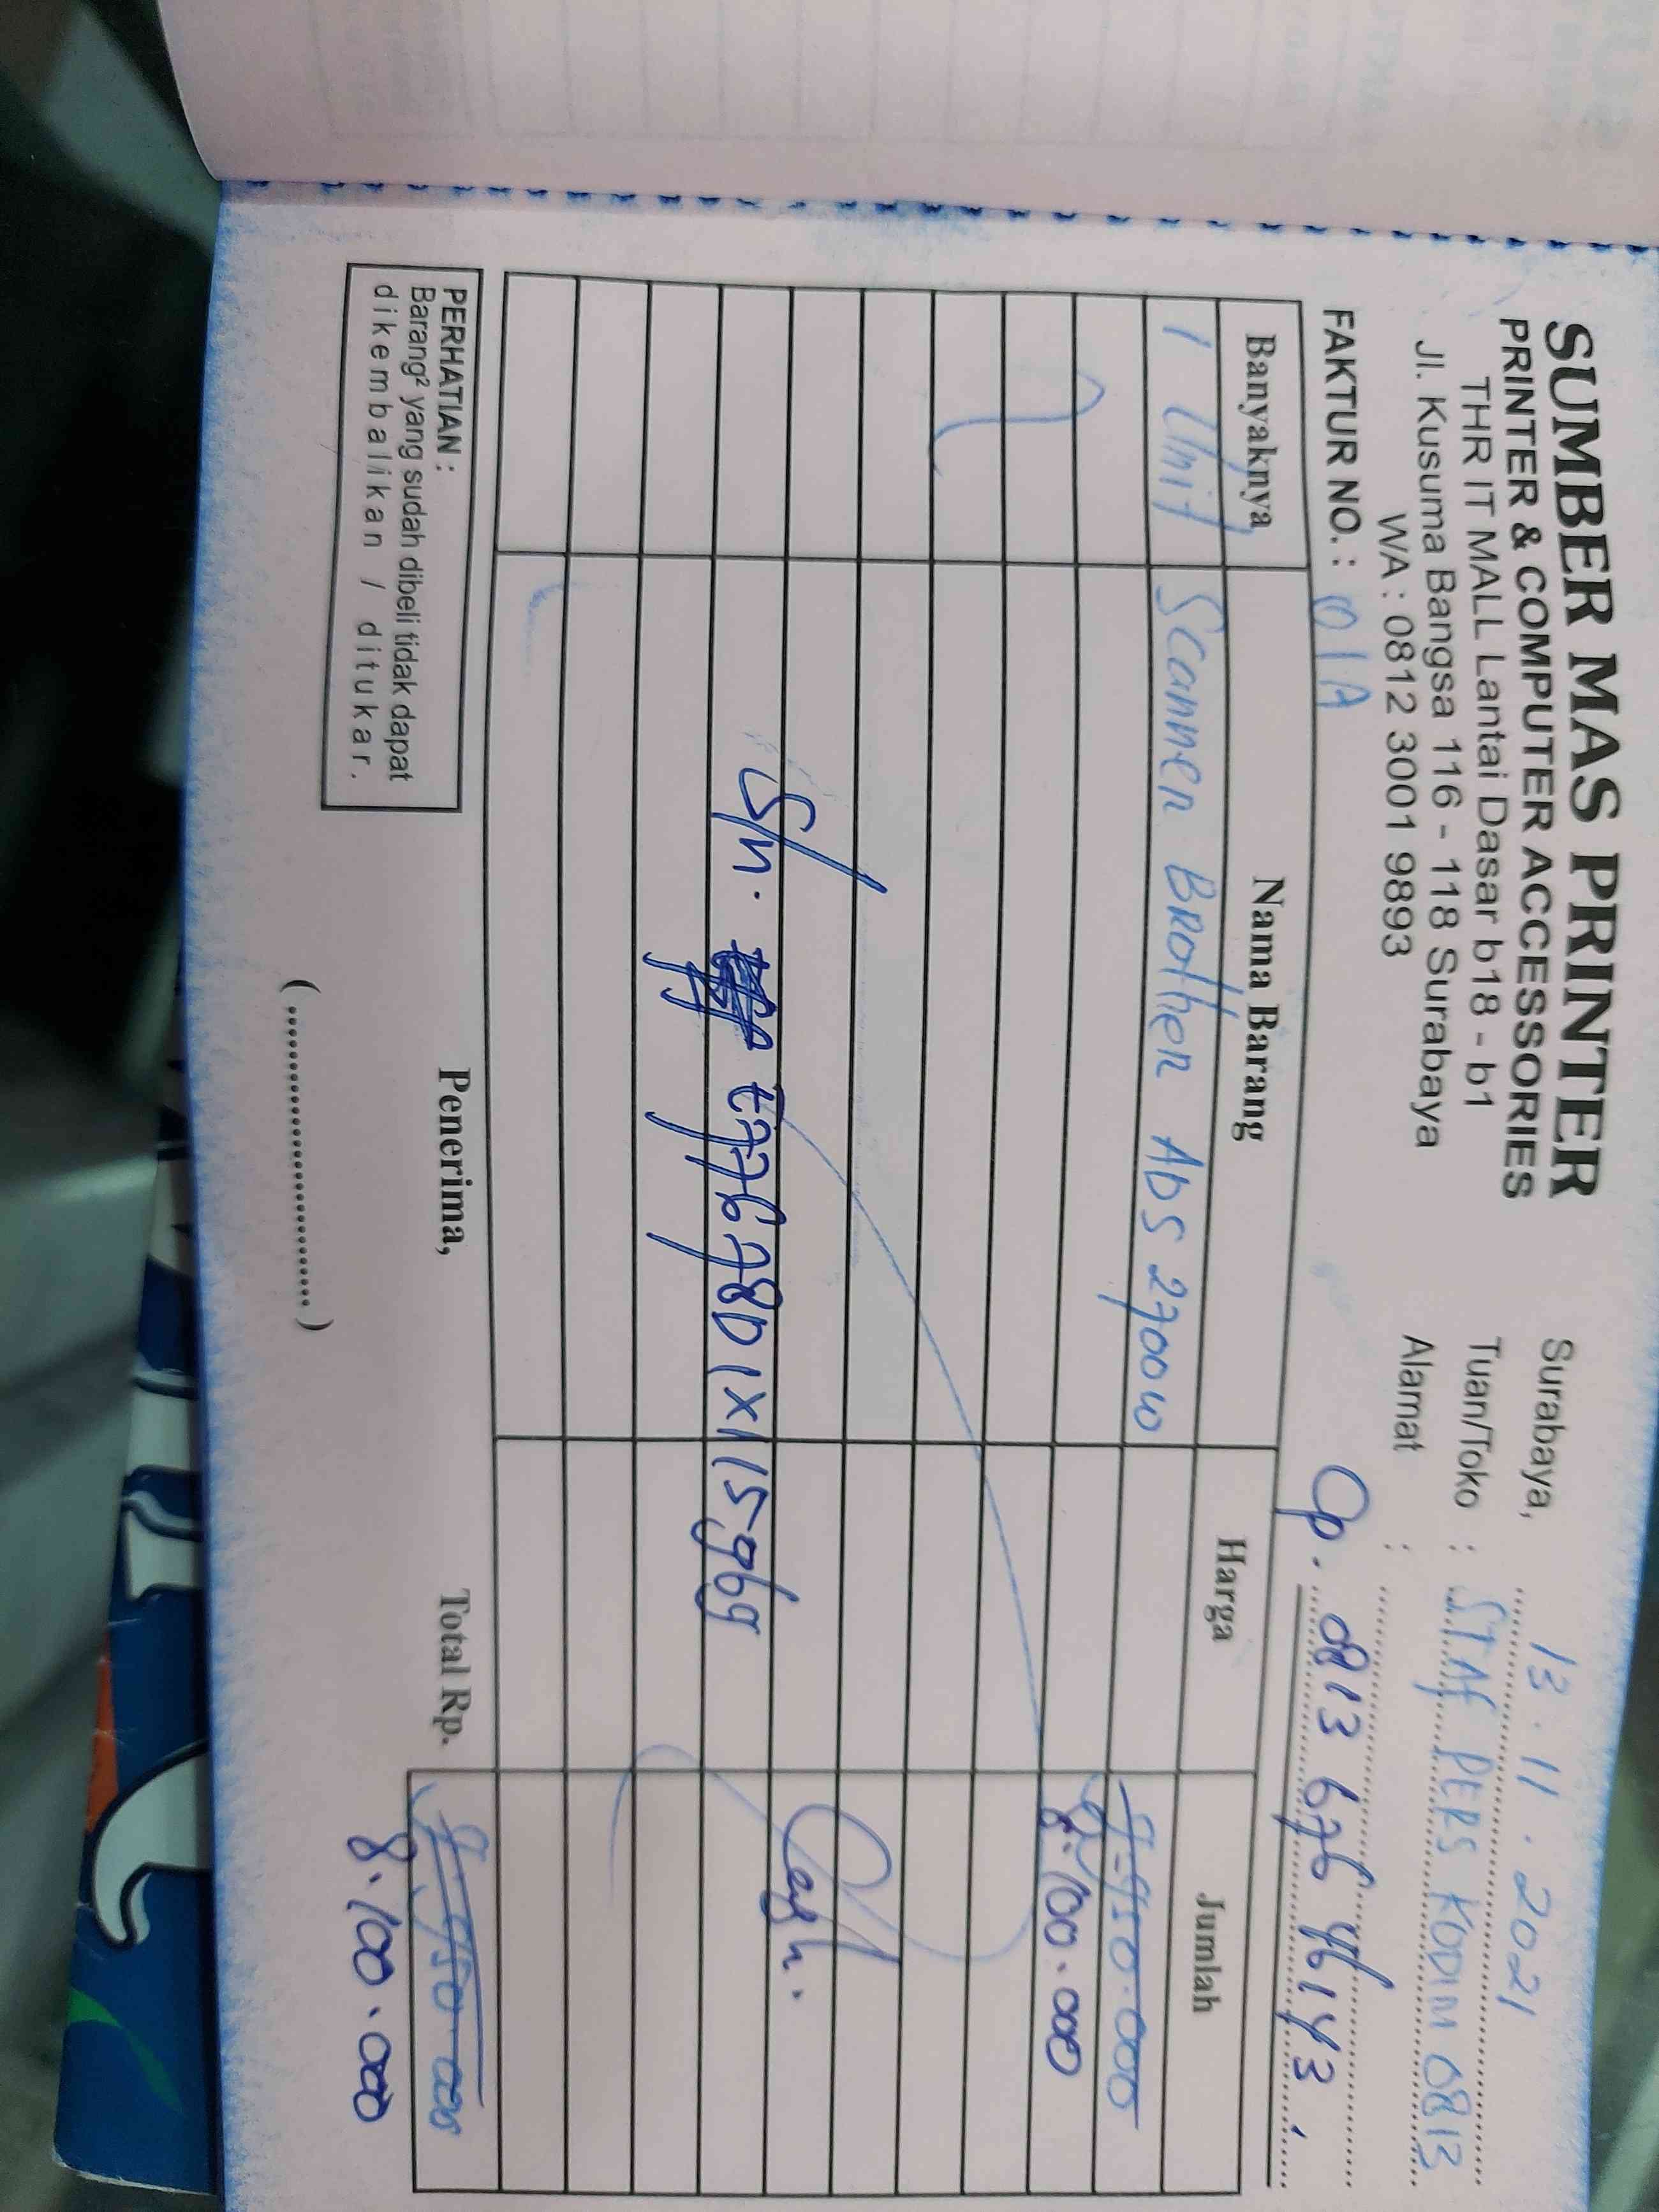 SUMBER MAS PRINTER
PRINTER & COMPUTER ACCESSORIES
THR IT MALL Lantai Dasar b18 - b1
Jl. Kusuma Bangsa 116 - 118 Surabaya
WA : 0812 3001 9893
Surabaya, 13 . 11 . 2021
Tuan/Toko : STAF PERS KODIM 0813
Alamat :
FAKTUR NO. : 01A
Op. 0813 676 4614 3 .
Banyaknya Nama Barang Harga Jumlah
1 Unit Scanner BRother Ads 2700w
8.100.000
Cash.
S/n. E77678D1X115969
PERHATIAN :
Barang² yang sudah dibeli tidak dapat
dikembalikan / ditukar.
Penerima,
(........................)
Total Rp.
8.100.000